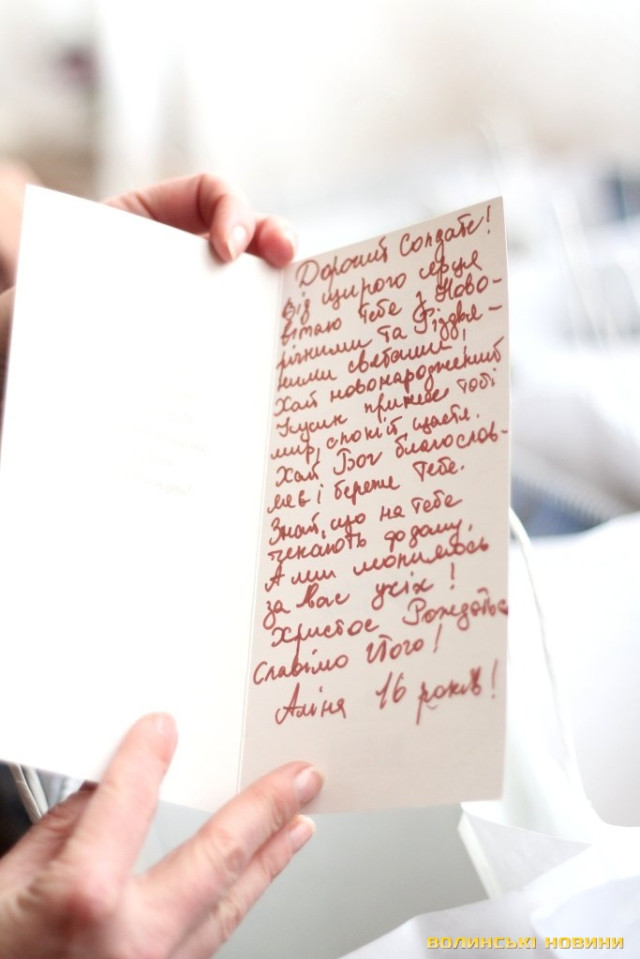 Дорогий Солдате!
Від щирого серця
вітаю тебе з Ново-
річними та Різдвя-
ними святами!
Хай новонароджений
Ісусик принесе тобі
мир, спокій, щастя.
Хай Бог благослов-
ляє і береже тебе.
Знай, що на тебе
чекають додому.
А ми молимось
за вас усіх!
Христос Рождаться
Славімо Його!
Аліня 16 років!
ВОЛИНСЬКІ НОВИНИ